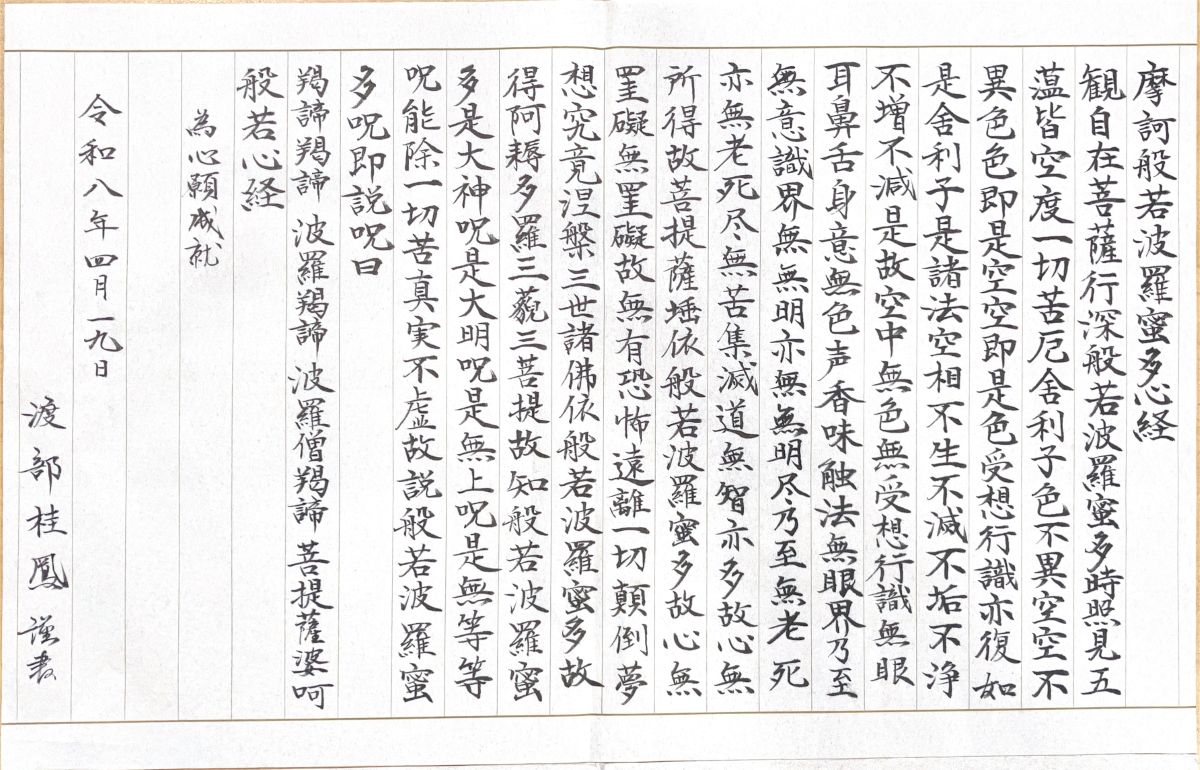 摩訶般若波羅蜜多心経
観自在菩薩行深般若波羅蜜多時照見五
蕰皆空度一切苦厄舎利子色不異空空不
異色色即是空空即是色受想行識亦復如
是舎利子是諸法空相不生不滅不垢不浄
不増不減是故空中無色無受想行識無眼
耳鼻舌身意無色声香味触法無眼界乃至
無意識界無無明亦無無明尽乃至無老死
亦無老死尽無苦集滅道無智亦多故心無
所得故菩提薩埵依般若波羅蜜多故心無
罣礙無罣礙故無有恐怖遠離一切顛倒夢
想究竟涅槃三世諸佛依般若波羅蜜多故
得阿耨多羅三藐三菩提故知般若波羅蜜
多是大神呪是大明呪是無上呪是無等等
呪能除一切苦真実不虚故説般若波羅蜜
多呪即説呪曰
羯諦羯諦 波羅羯諦 波羅僧羯諦 菩提薩婆呵
般若心経
為心願成就
令和八年四月一九日
渡部桂鳳 謹書